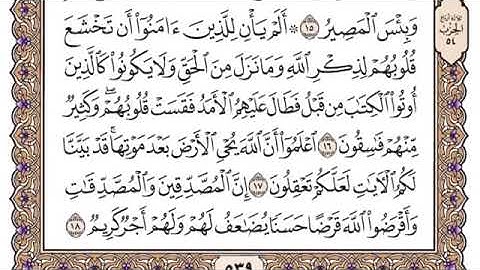 وَبِئْسَ ٱلْمَصِيرُ ١٥ ۞ أَلَمْ يَأْنِ لِلَّذِينَ ءَامَنُوٓا۟ أَن تَخْشَعَ
قُلُوبُهُمْ لِذِكْرِ ٱللَّهِ وَمَا نَزَلَ مِنَ ٱلْحَقِّ وَلَا يَكُونُوا۟ كَٱلَّذِينَ
أُوتُوا۟ ٱلْكِتَٰبَ مِن قَبْلُ فَطَالَ عَلَيْهِمُ ٱلْأَمَدُ فَقَسَتْ قُلُوبُهُمْ ۖ وَكَثِيرٌ
مِّنْهُمْ فَٰسِقُونَ ١٦ ٱعْلَمُوٓا۟ أَنَّ ٱللَّهَ يُحْىِ ٱلْأَرْضَ بَعْدَ مَوْتِهَا ۚ قَدْ بَيَّنَّا
لَكُمُ ٱلْءَايَٰتِ لَعَلَّكُمْ تَعْقِلُونَ ١٧ إِنَّ ٱلْمُصَّدِّقِينَ وَٱلْمُصَّدِّقَٰتِ
وَأَقْرَضُوا۟ ٱللَّهَ قَرْضًا حَسَنًا يُضَٰعَفُ لَهُمْ وَلَهُمْ أَجْرٌ كَرِيمٌ ١٨
٥٣٩
الحزب
٥٤